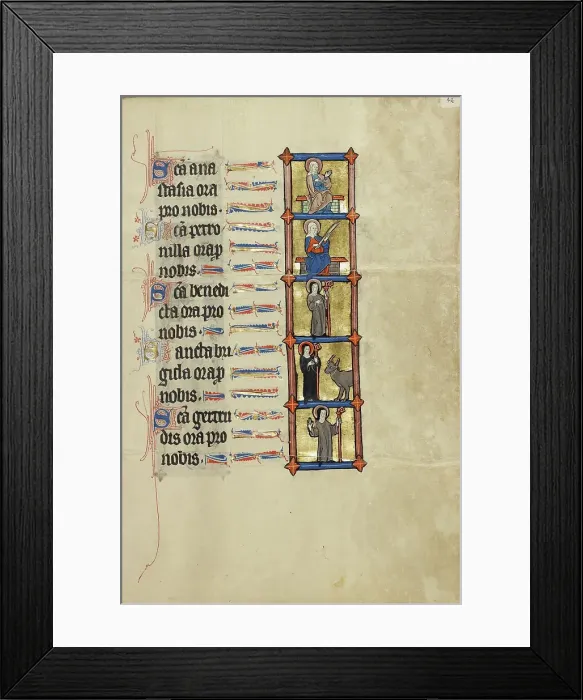 Scā ana
stasia ora
pro nobis.
Scā petro
nilla ora p
nobis.
Scā benedi
cta ora pro
nobis.
Sancta bri
gida ora p
nobis.
Scā gertru
dis ora pro
nobis.